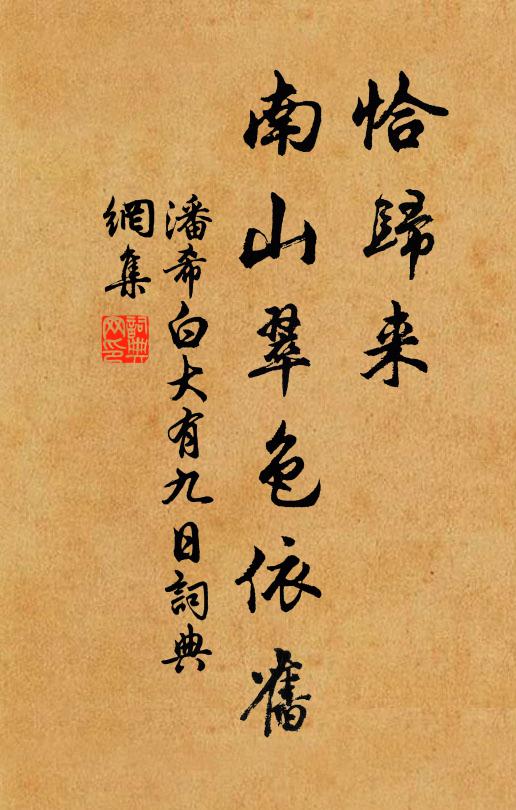 恰歸来
南山翠色依舊
潘希白大有九日詞典
網集
詞典
网印